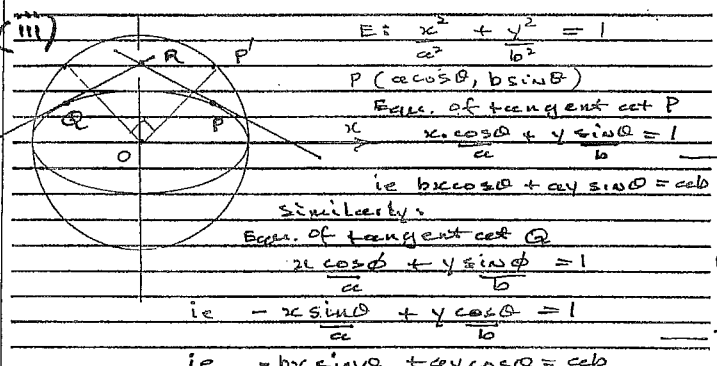 (iii)
E: x²/a² + y²/b² = 1
R P'
P (a cosθ, b sinθ)
Q P
Equ. of tangent at P
x
x cosθ/a + y sinθ/b = 1
O
ie bx cosθ + ay sinθ = ab
Similarly:
Equ. of tangent at Q
x cosø/a + y sinø/b = 1
ie - x sinθ/a + y cosθ/b = 1
ie - bx sinθ + ay cosθ = ab